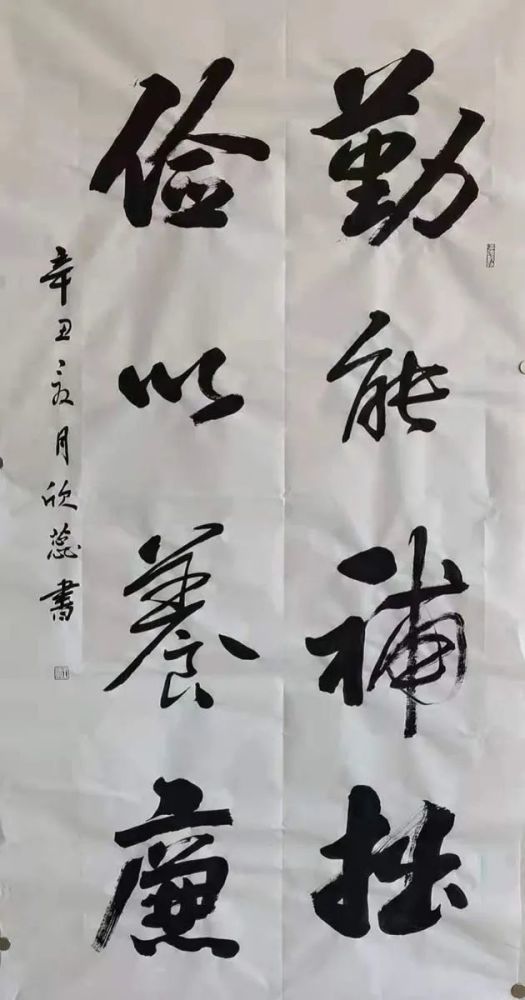 勤能補拙
儉以養廉
辛丑亥月欣蕊書